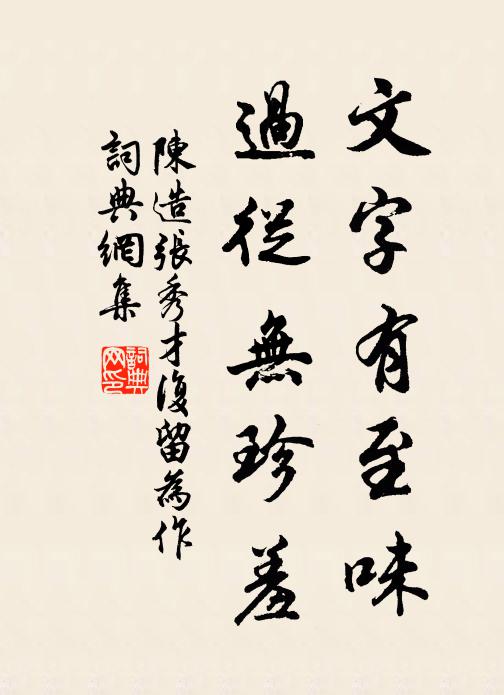 文字有至味
過從無珍羞
陳造張秀才復留為作
詞典網集
詞典网印